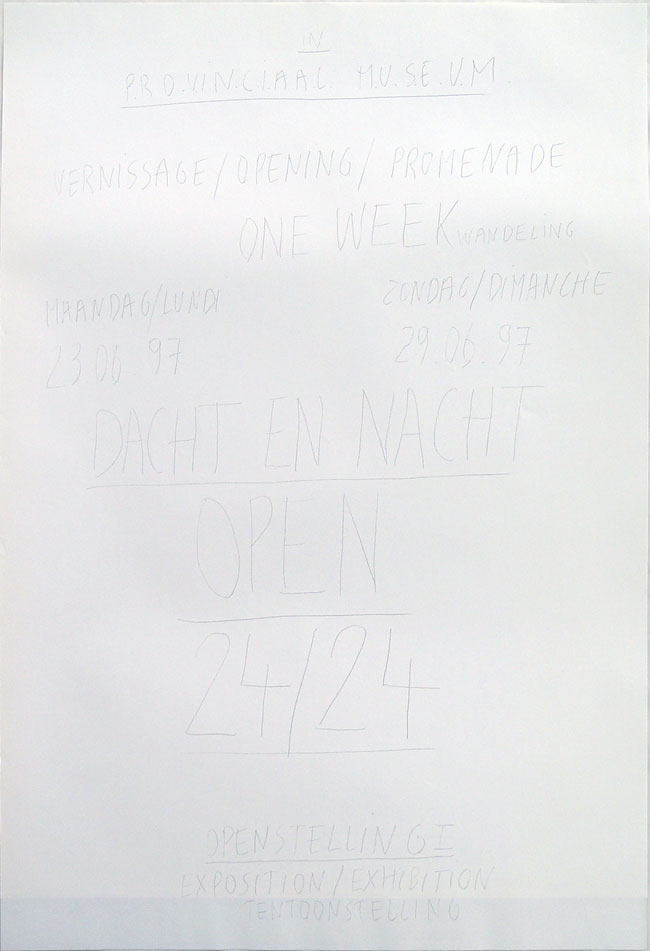 IN
P.R.O.V.I.N.C.I.A.A.L. M.U.S.E.U.M.
VERNISSAGE/OPENING/PROMENADE
ONE WEEK WANDELING
MAANDAG/LUNDI ZONDAG/DIMANCHE
23.06.97 29.06.97
DACHT EN NACHT
OPEN
24/24
OPENSTELLINGI
EXPOSITION/EXHIBITION
TENTOONSTELLING